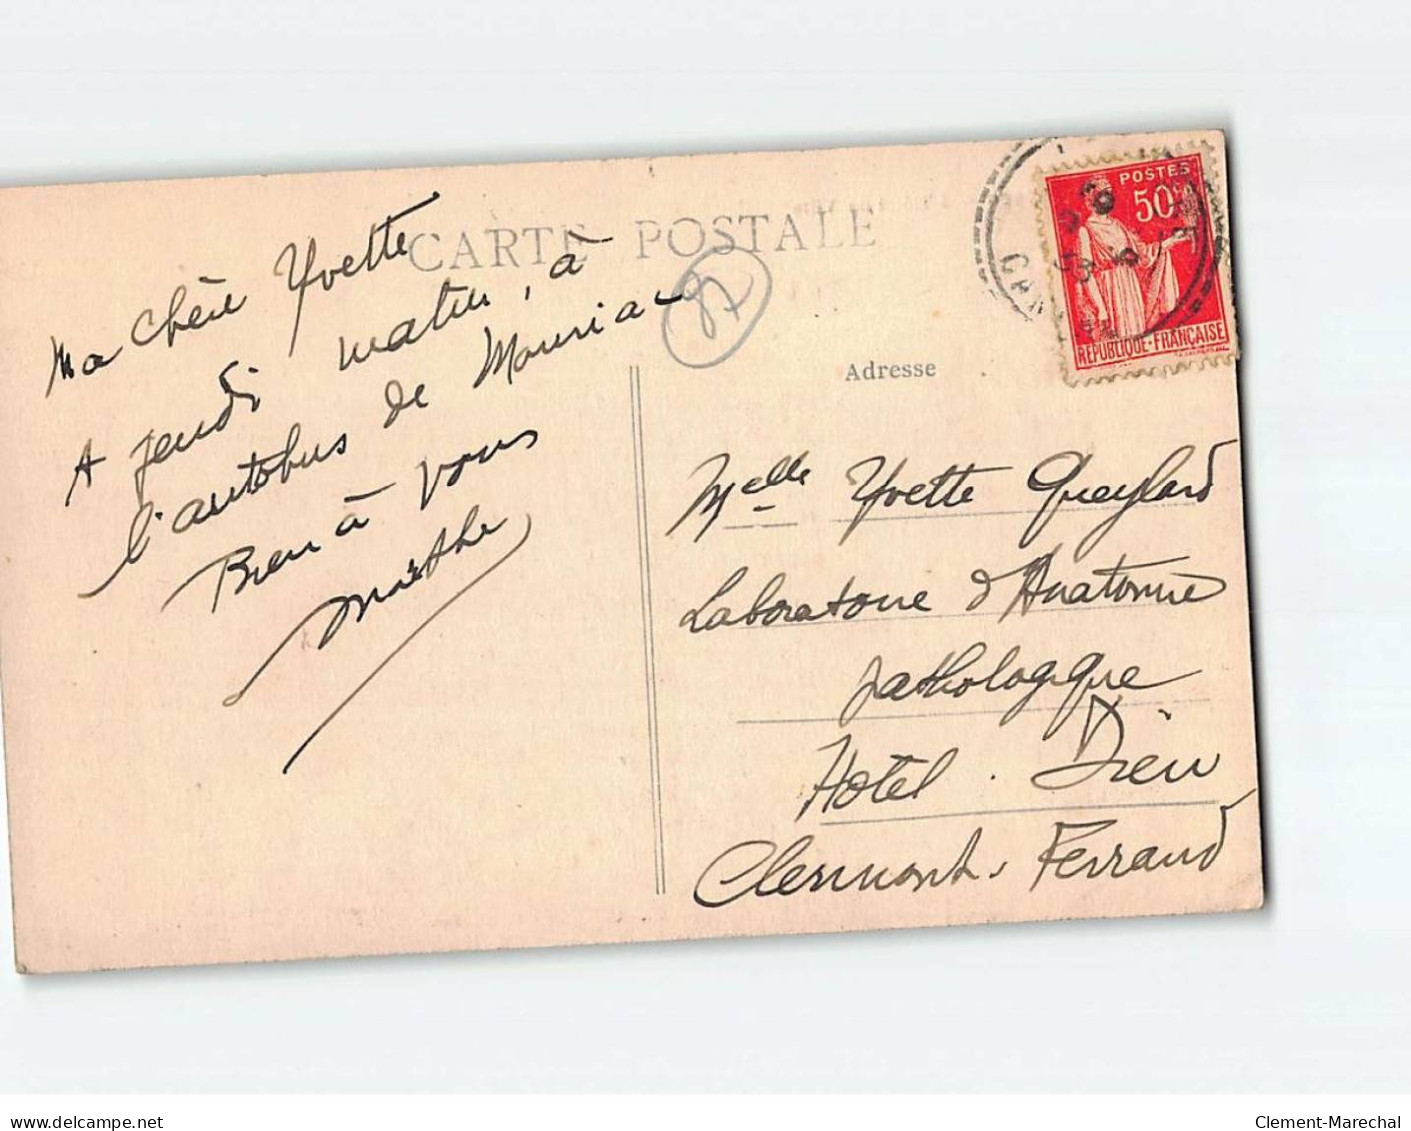 CARTE POSTALE
Ma chère Yvette
A jeudi matin, à
l'autobus de Mauriac
Bien à vous
Marthe
87
POSTES
50c
REPUBLIQUE-FRANÇAISE
CANTAL
Adresse
Melle Yvette Queylard
Laboratoire d'Anatomie
pathologique
Hôtel. Dieu
Clermont. Ferrand
delcampe.net
Clement-Marechal